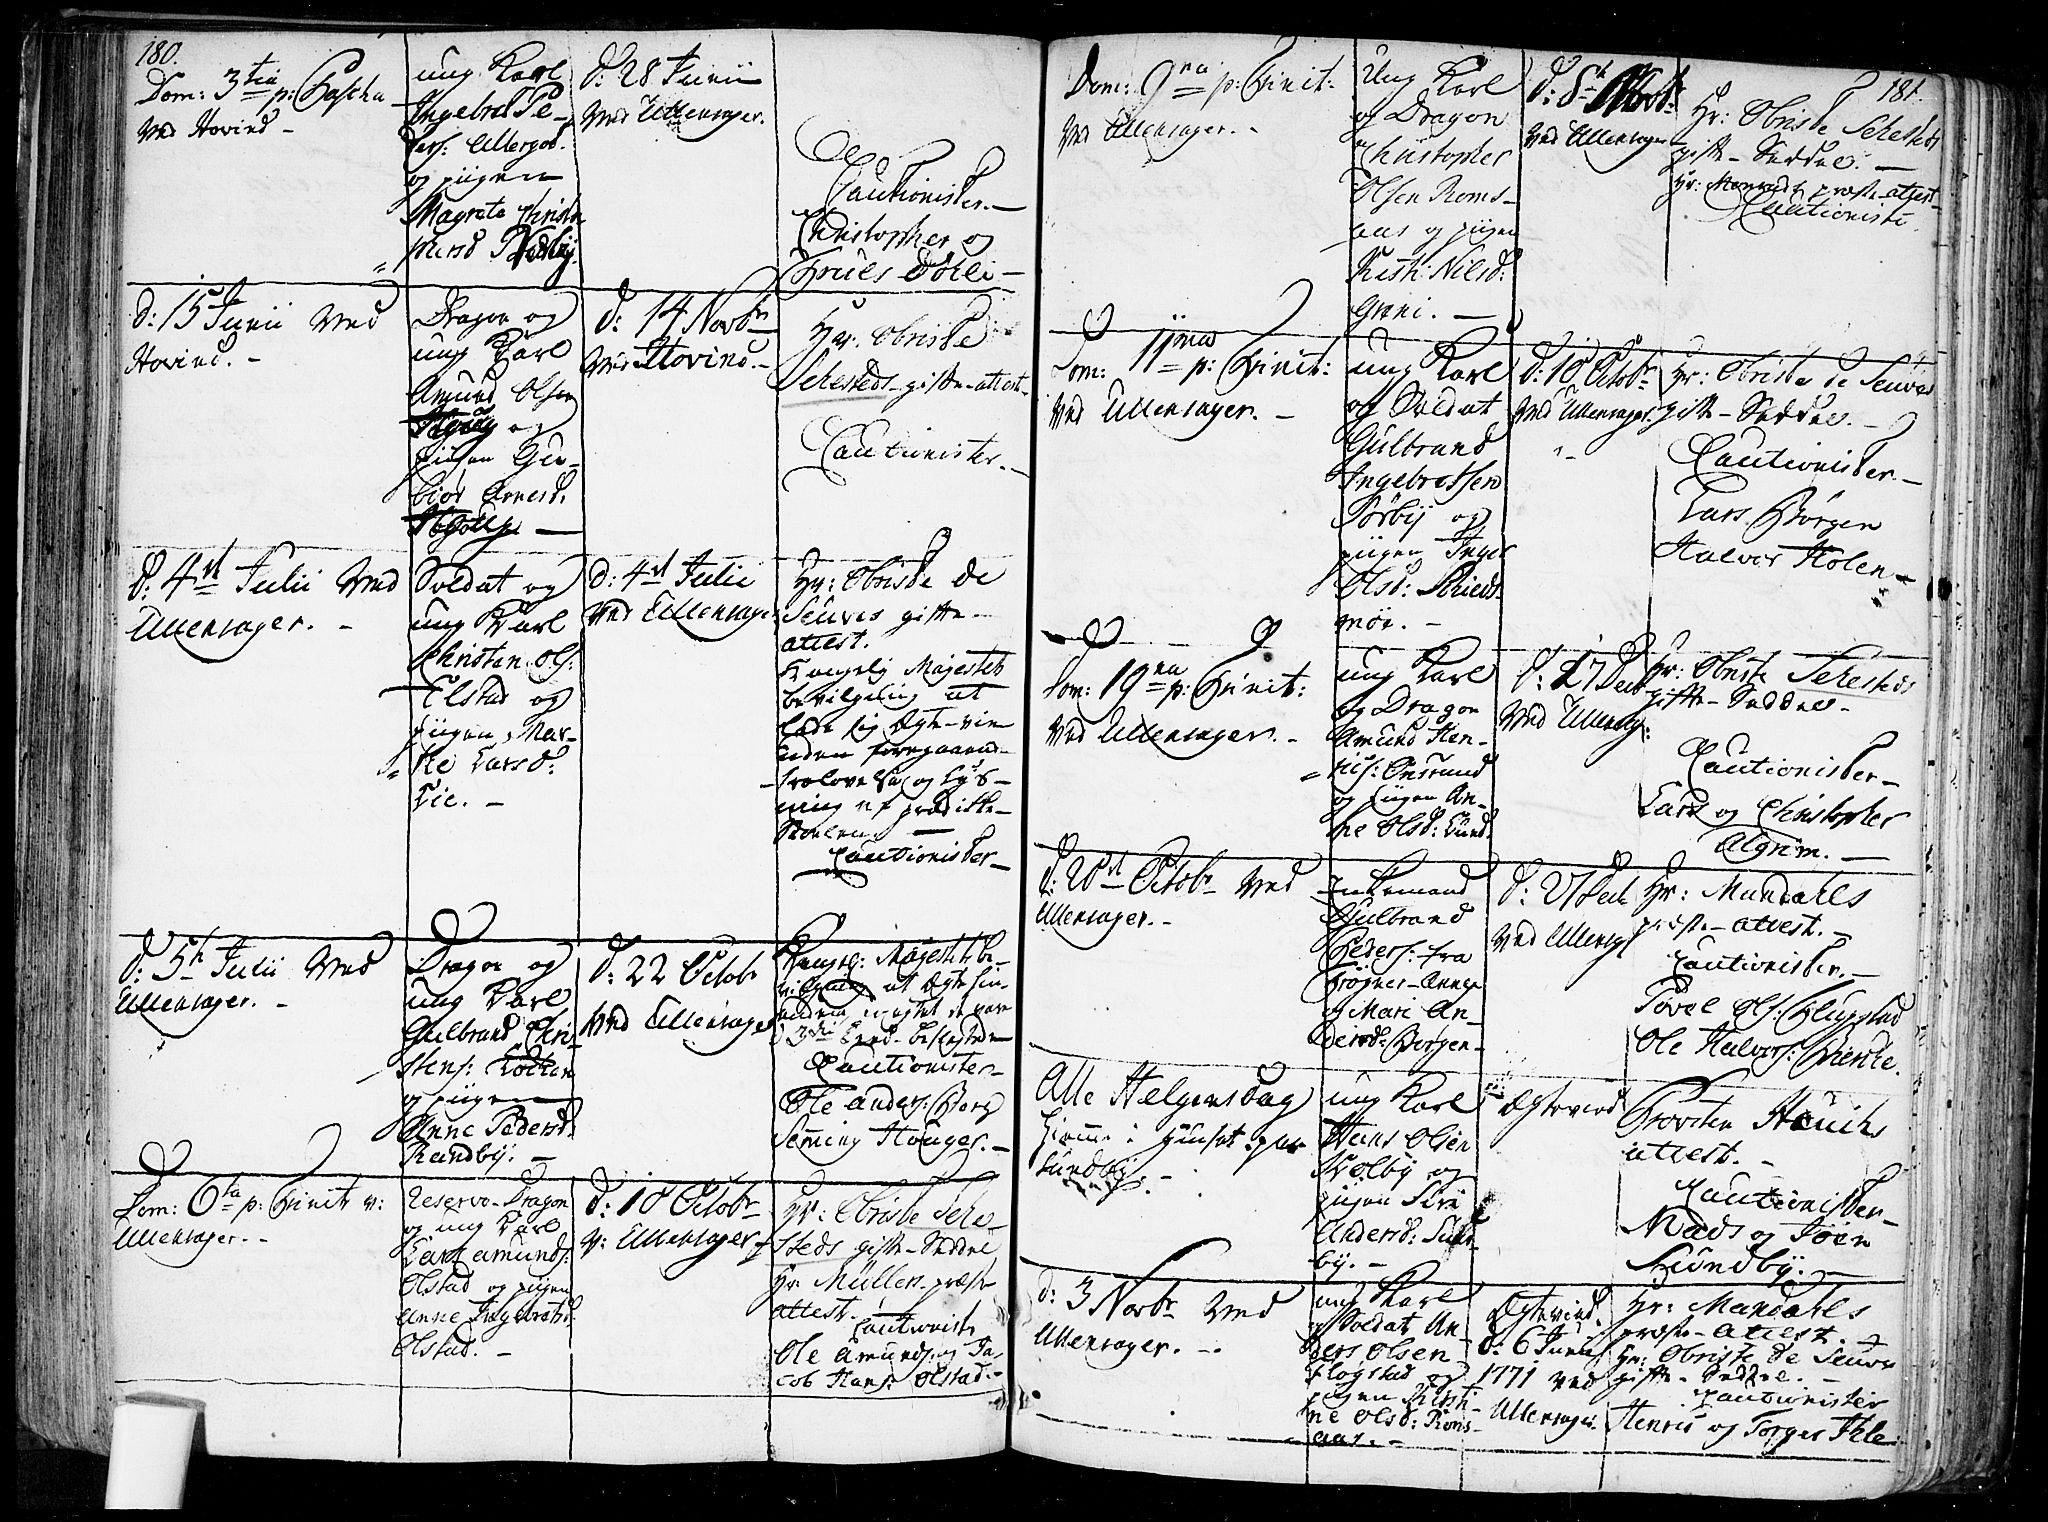 180.
Dom: 3tia p: Pascha
Ved Hovind -
ung Karl
Ingebret Pe-
ders: Ullergod.
og pigen
Magrete Christo
phersd Nedby.
d: 28 Junii
Ved Ullensager.
Cautionister. -
Christopher og
Truels Dohli -
d: 15 Junii Ved
Hovind. -
Dragon og
ung Karl
Amund Olsen
og
pigen Gu-
bior Arnesd:
d: 14 Novbr
Ved Hovind. -
Hr: Obriste
Sehesteds gifte-attest.
Cautionister. -
d: 4st Julii Ved
Ullensager. -
Soldat og
ung Karl
Christan Ols:
Elstad og
pigen Mar-
the Larsd:
Lie. -
d: 4st Julii
Ved Ullensager
Hr: Obriste de
Seuves gifte-
attest.
Kongelig Majestets
bevilgning at
lade sig Ægte-vie
uden foregaaend-
trolovelse og Lys-
ning af prædike-
Stoelen. -
Cautionister -
d: 5t Julii Ved
Ullensager. -
Dragon og
ung Karl
Gulbrand Chri-
stens: Lodtzen
og pigen
Anne Pedersd.
Randby. -
d: 22 Octobr
Ved Ullensager
Kongel: Majestets be-
vilgning at Ægte hin-
anden uagtet de vare
i 3die Leed beslegtede
Cautionister -
Ole Anders: Berg
Semming Houger. -
Dom: 6ta p: Trinit v:
Ullensager. -
Reservo-Dragon
og ung Karl
Lars Amunds:
Olstad og pigen
Anne Ingebretsd.
Olstad. -
d: 18 Octobr
V: Ullensager
Hr: Obriste Sehe-
steds gifte-Seddel
Hr Müllers præste
attest.
Cautionister
Ole Amunds: og Ja-
cob Hans: Olstad. -
181.
Dom: 9na p: Trinit:
Ved Ullensager. -
Ung Karl
og Dragon
Christopher
Olsen Roms-
aas og pigen
Kisti: Nilsd:
Grini. -
d: 8t Novbr
Ved Ullensager
Hr: Obriste Sehesteds
gifte-Seddel. -
Hr: præste-attest
Cautionister
Dom: 11ma p: Trinit:
Ved Ullensager. -
ung Karl
og Soldat
Gulbrand
Ingebretsen
Sörby og
pigen Inger
Olsd: Skieds-
moe. -
d: 18 Octobr
Ved Ullensager.
Hr: Obriste de Seuves
gifte-Seddel. -
Cautionister. -
Lars Börgen
Halvor Holen -
Dom: 19na p: Trinit:
Ved Ullensager. -
ung Karl
og Dragon
Amund Hen-
rics: Onsrund
og pigen An-
ne Olsd: Lund.
d: 27 Decbr
Ved Ullensag:
Hr: Obriste Sehesteds
gifte-Seddel -
Cautionister -
Lars og Christopher
Algrim. -
d: 20st Octobr Ved
Ullensager. -
Enkemand
Gulbrand
Peders: fra
Frogner-Annex
og Mari An-
dersd: Börgen -
d: 27 Decb
Ved Ullensag
Hr: Mandahls
præste-attest. -
Cautionister. -
Povel Ols: Flugstad
Ole Halvors:
Alle Helgens Dag
hiemme i Huuset paa
Lundby. -
ung Karl
Hans Olsen
Melby og
pigen Siri
Andersd: Lund-
by. -
Ægteviet
Provsten Hauchs
attest. -
Cautionister -
Mads og Joen
Lundby. -
d: 3 Novbr Ved
Ullensager. -
ung Karl
og Soldat An-
ders Olsen
Flogstad og
pigen Kirsti-
ne Olsd: Roms-
aas. -
Ægteviet.
d: 6 Junii
1771 ved
Ullensager.
Hr: Mandahls
præste-attest. -
Hr: Obriste de Seuve
gifte-Seddel. -
Cautionister
Henric og Torger Ihle